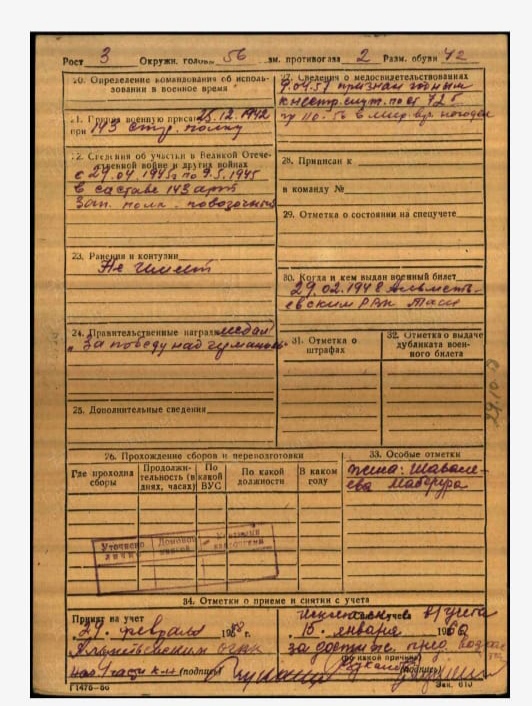 Рост 3 Окружн. головы 56 зм. противогаза 2 Разм. обуви 42
20. Определение командования об исполь-
зовании в военное время
21. Принял военную присягу 25.12.1942
при 143 стр. полку
22. Сведения об участи в Великой Отече-
ственной войне и других войнах
с 29.04.1945г по 9.5.1945
в составе 143 арт
Зап. полк. повозочный
23. Ранения и контузии
Не имеет
24. Правительственные награды медаль
"За победу над германией"
25. Дополнительные сведения
27. Сведения о медосвидетельствованиях
9.04.57 признан годным
к нестр. служ. по ст. 72б
28. Приписан к
в команду №
29. Отметка о состоянии на спецучете
30. Когда и кем выдан военный билет
29.02.1948 Альметь-
евским РВК Тасср
31. Отметка о
штрафах
32. Отметка о выдаче
дубликата воен-
ного билета
29.10.
26. Прохождение сборов и переподготовки
Где проходил
сборы
Продолжи-
тельность (в
днях, часах)
По
какой
ВУС
По какой
должности
В каком
году
33. Особые отметки
жена: Шавале-
ева
Уточнено
34. Отметки о приеме и снятии с учета
Принят на учет
29 февраля 1948 г.
(подпись)
учета
15 января 1960
за достиж. пред. возра
(по какой причине)
(подпись)
Г1475-86
Зак. 610